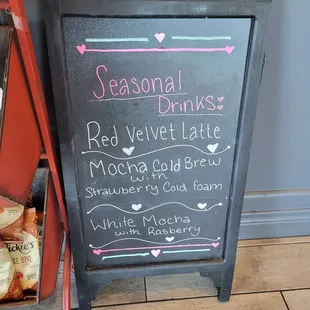 Seasonal
Drinks:
Red Velvet Latte
Mocha Cold Brew
with
Strawberry Cold foam
White Mocha
with Rasberry